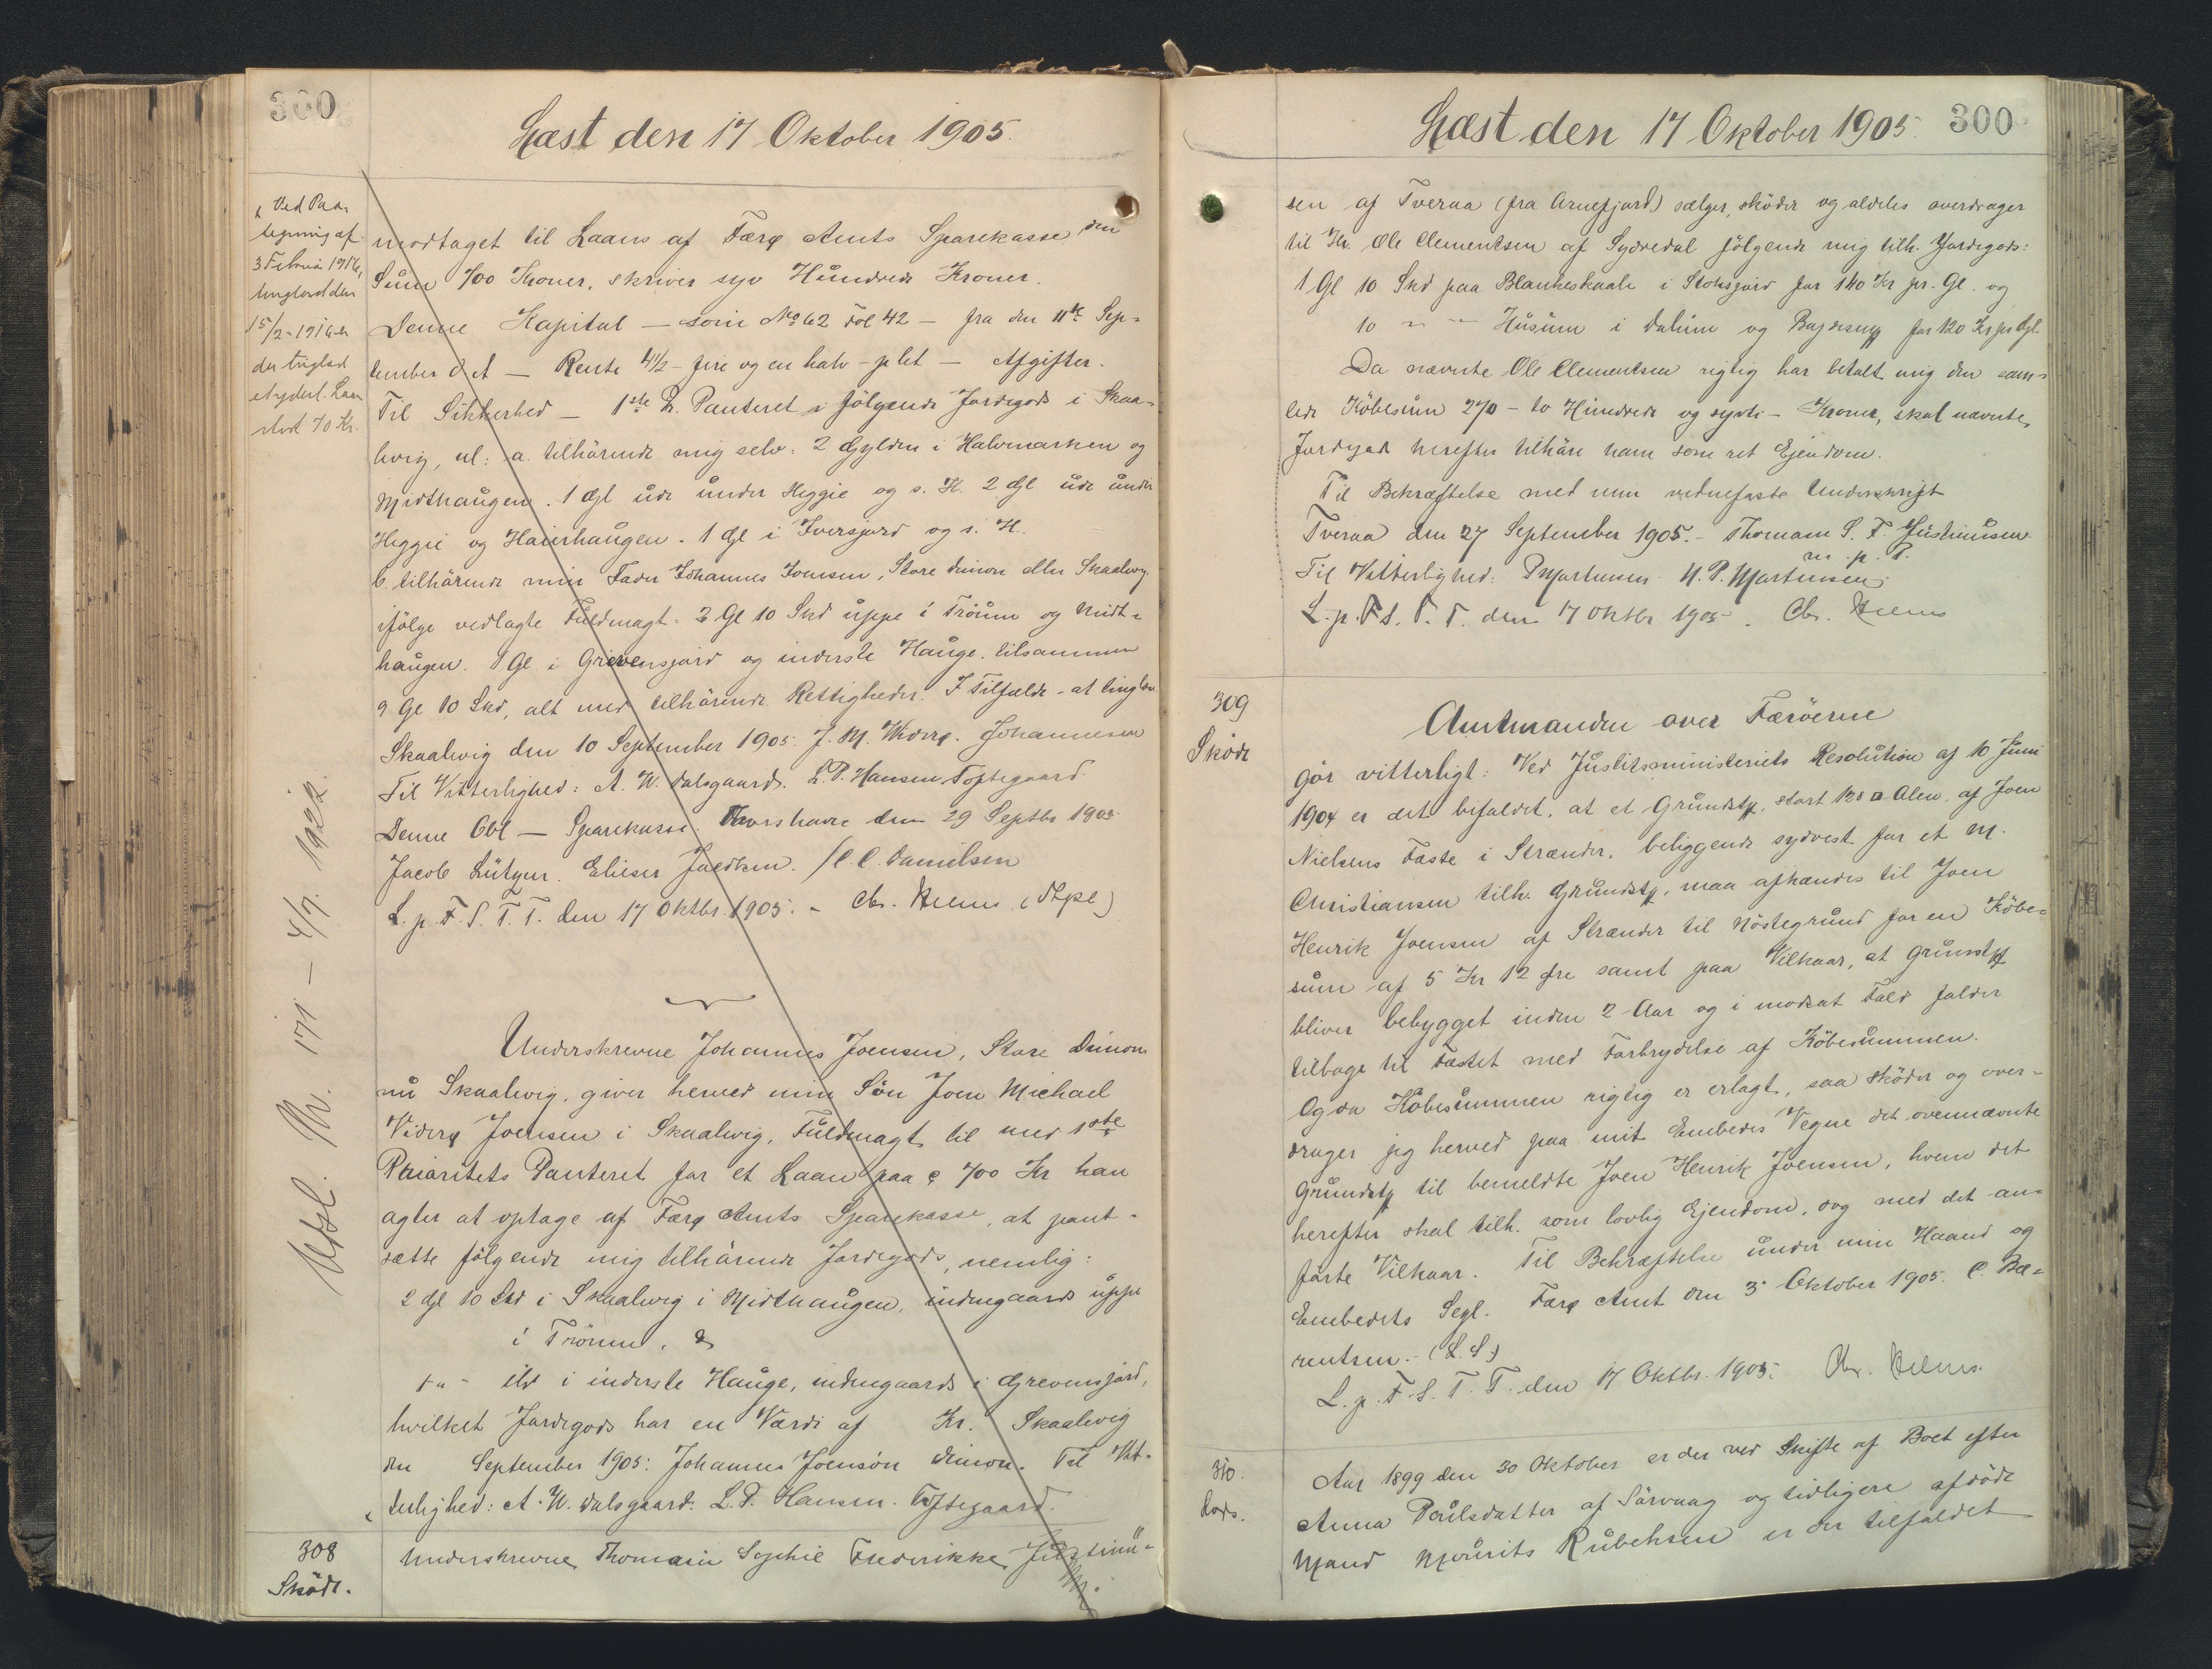 300
Læst den 17 Oktober 1905.
Ved Paa-
tegning af
3 Februar 1916,
tinglæst den
15/2-1916 er
der
afbetalt Laan
stort 70 Kr.
modtaget til Laans af Færø Amts Sparekasse den
Sum 700 Kroner, skriver syv Hundrede Kroner.
Denne Kapital — som No 62 Fol 42 — fra den 11te Sep-
tember d. A — Rente 4 1/2 - fire og en halv - pCt — Afgifter.
Til Sikkerhed — 1ste P. Panteret i følgende Jordegods i Skaa-
levig, nl: a. tilhørende mig selv: 2 Gylden i Halvmarken og
Midthaugen. 1 Gl ude under Heggie og s. H. 2 Gl ude under
Heggie og Hairhaugen. 1 Gl i Iversjord og s. H.
b. tilhørende min Fader Johannes Joensen, Store Dimon eller Skaalevig
ifølge vedlagte Fuldmagt: 2 Gl 10 Skd uppe i Tröum og Midt-
haugen. 1 Gl i Grevensjord og inderste Hauge. tilsammen
9 Gl 10 Skd, alt med tilhørende Rettigheder. I Tilfælde - at tinglæse
Skaalevig den 10 September 1905. J. M. Viderø. Johannesen
Til Vitterlighed: A. W. Dalsgaard. L. P. Hansen Toftegaard.
Denne Obl — Sparekasse. Thorshavn den 29 Septbr 1905.
Jacob Lützen. Elieser Jacobsen. / C. C. Danielsen
L. p. F. S. T. T. den 17 Oktbr. 1905. - Chr. Helms (Stpl)
Underskrevne Johannes Joensen, Store Dimon
nu Skaalevig, giver herved min Søn Joen Michael
Viderø Joensen i Skaalevig, Fuldmagt til med 1ste
Prioritets Panteret for et Laan paa c 700 Kr han
agter at optage af Færø Amts Sparekasse, at pant-
sætte følgende mig tilhørende Jordegods, nemlig:
2 Gl 10 Skd i Skaalevig i Midthaugen, indengaards uppe
i Tröum, &
1 " - ibd i inderste Hauge, indengaards i Grevensjord,
hvilket Jordegods har en Værdi af Kr. Skaalevig
den September 1905: Johannes Joensøn Dimon. Til Vit-
terlighed: A. W. Dalsgaard. L. P. Hansen. Toftegaard.
Udsl. Nr. 171 - 4/7. 1922.
308
Skøde.
Underskrevne Thomasia Sophie Frederikke Justinu-
Læst den 17 Oktober 1905.
300
sen af Tveraa (fra Arnefjord) sælger, skøder og aldeles overdrager
til Hr. Ole Clementsen af Sydredal følgende mig tilh. Jordegods:
1 Gl 10 Skd paa Blankeskaale i Stoksjord for 140 Kr pr. Gl. og
10 " - Husum i Dalum og for 120 Kr pr Gl.
Da nævnte Ole Clementsen rigtig har betalt mig den sam-
lede Købesum 270 - to Hundrede og syvti - Kroner, skal nævnte
Jordegods herefter tilhøre ham som ret Ejendom.
Til Bekræftelse med min vednefaste Underskrift
Tveraa den 27 September 1905. - Thomasia S. F. Justinussen
m. p. P.
Til Vitterlighed: P Mortensen. N. P. Mortensen.
L. p. F S. T. T. den 17 Oktbr 1905. Chr. Helms
309
Skøde
Amtmanden over Færøerne
gør vitterligt: Ved Justitsministeriets Resolution af 10 Juni
1904 er det befalet, at et Grundstk. stort 128 □ Alen, af Joen
Nielsens Fæste i Strænder, beliggende sydvest for et M.
Christiansen tilh. Grundstk, maa afhændes til Joen
Henrik Joensen af Strænder til Nøstegrund for en Købe-
sum af 5 Kr 12 Øre samt paa Vilkaar, at Grundstk
bliver bebygget inden 2 Aar og i modsat Fald falder
tilbage til Fæstet med Forbrydelse af Købesummen.
Og da Købesummen rigtig er erlagt, saa skøder og over-
drager jeg herved paa mit Embedes Vegne det ovennævnte
Grundstk til bemeldte Joen Henrik Joensen, hvem det
herefter skal tilh. som lovlig Ejendom, dog med det an-
førte Vilkaar. Til Bekræftelse under min Haand og
Embedets Segl. Færø Amt den 3 Oktober 1905. C. Bæ-
rentsen. (L. S.)
L. p. F. S. T. T. den 17 Oktbr. 1905. Chr. Helms.
310.
Aar 1899 den 30 Oktober er der ved Skifte af Boet efter
Anna Poulsdatter af Sørvaag og tidligere afdøde
Mand Mourits Rubeksen er der tilfaldet